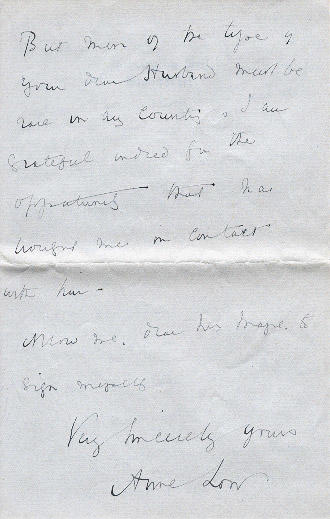 But men of the type of
your dear Husband must be
rare in any country, & I am
grateful indeed for the
opportunity that has
brought me in contact
with him -
Allow me, dear Mrs to
sign myself
Very sincerely yours
Anne